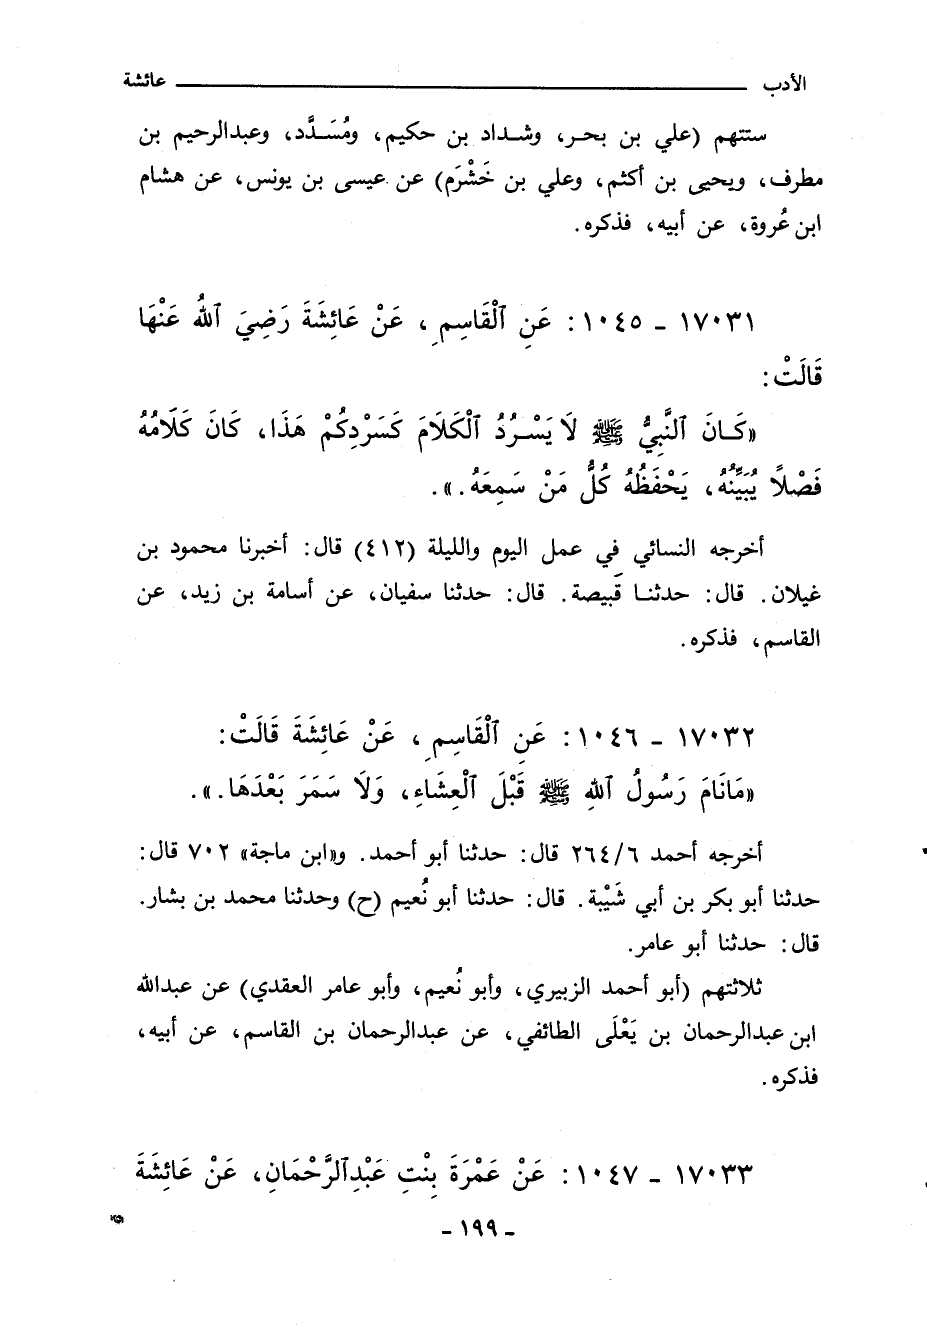 الأدب عائشة
ستتهم (علي بن بحر، وشداد بن حكيم، ومُسَدَّد، وعبدالرحيم بن
مطرف، ويحيى بن أكثم، وعلي بن خَشْرَم) عن عيسى بن يونس، عن هشام
ابن عُروة، عن أبيه، فذكره.
١٧٠٣١ - ١٠٤٥: عَنِ ٱلْقَاسِمِ، عَنْ عَائِشَةَ رَضِيَ ٱللهُ عَنْهَا
قَالَتْ:
«كَانَ ٱلنَّبِيُّ ﷺ لَا يَسْرُدُ ٱلْكَلَامَ كَسَرْدِكُمْ هَذَا، كَانَ كَلَامُهُ
فَصْلًا يُبَيِّنُهُ، يَحْفَظُهُ كُلُّ مَنْ سَمِعَهُ.».
أخرجه النسائي في عمل اليوم والليلة (٤١٢) قال: أخبرنا محمود بن
غيلان. قال: حدثنا قَبيصة. قال: حدثنا سفيان، عن أسامة بن زيد، عن
القاسم، فذكره.
١٧٠٣٢ - ١٠٤٦: عَنِ ٱلْقَاسِمِ، عَنْ عَائِشَةَ قَالَتْ:
«مَانَامَ رَسُولُ ٱللهِ ﷺ قَبْلَ ٱلْعِشَاءِ، وَلَا سَمَرَ بَعْدَهَا.».
أخرجه أحمد ٢٦٤/٦ قال: حدثنا أبو أحمد. و«ابن ماجة» ٧٠٢ قال:
حدثنا أبو بكر بن أبي شَيْبة. قال: حدثنا أبو نُعيم (ح) وحدثنا محمد بن بشار.
قال: حدثنا أبو عامر.
ثلاثتهم (أبو أحمد الزبيري، وأبو نُعيم، وأبو عامر العقدي) عن عبدالله
ابن عبدالرحمان بن يَعْلَى الطائفي، عن عبدالرحمان بن القاسم، عن أبيه،
فذكره.
١٧٠٣٣ - ١٠٤٧: عَنْ عَمْرَةَ بِنْتِ عَبْدِٱلرَّحْمَانِ، عَنْ عَائِشَةَ
- ١٩٩ -